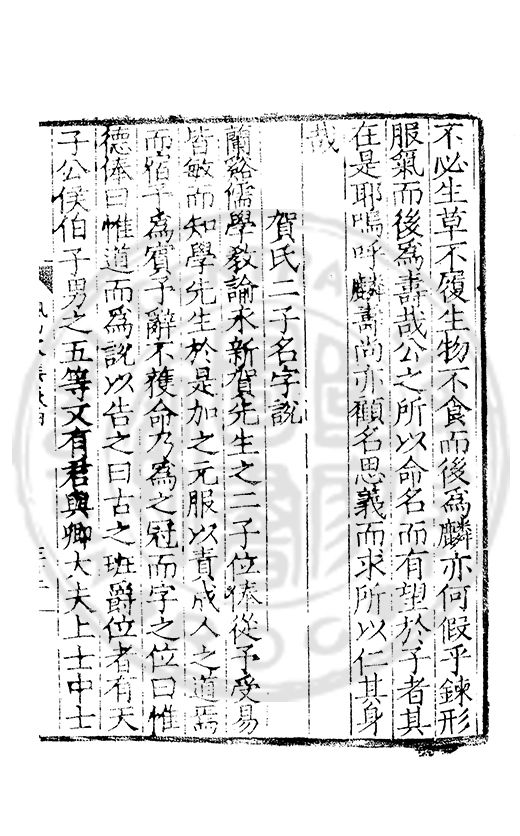 不必生草不履生物不食而後為麟亦何假乎鍊形
服氣而後為壽哉公之所以命名而有望於子者其
在是耶嗚呼麟壽尚亦顧名思義而求所以仁其身
哉
賀氏二子名字說
蘭谿儒學教諭永新賀先生之二子位俸從予受易
皆敏而知學先生於是加之元服以責成人之道焉
而宿予為賓予辭不獲命乃為之冠而字之位曰惟
德俸曰惟道而為說以告之曰古之班爵位者有天
子公侯伯子男之五等又有君與卿大夫上士中士